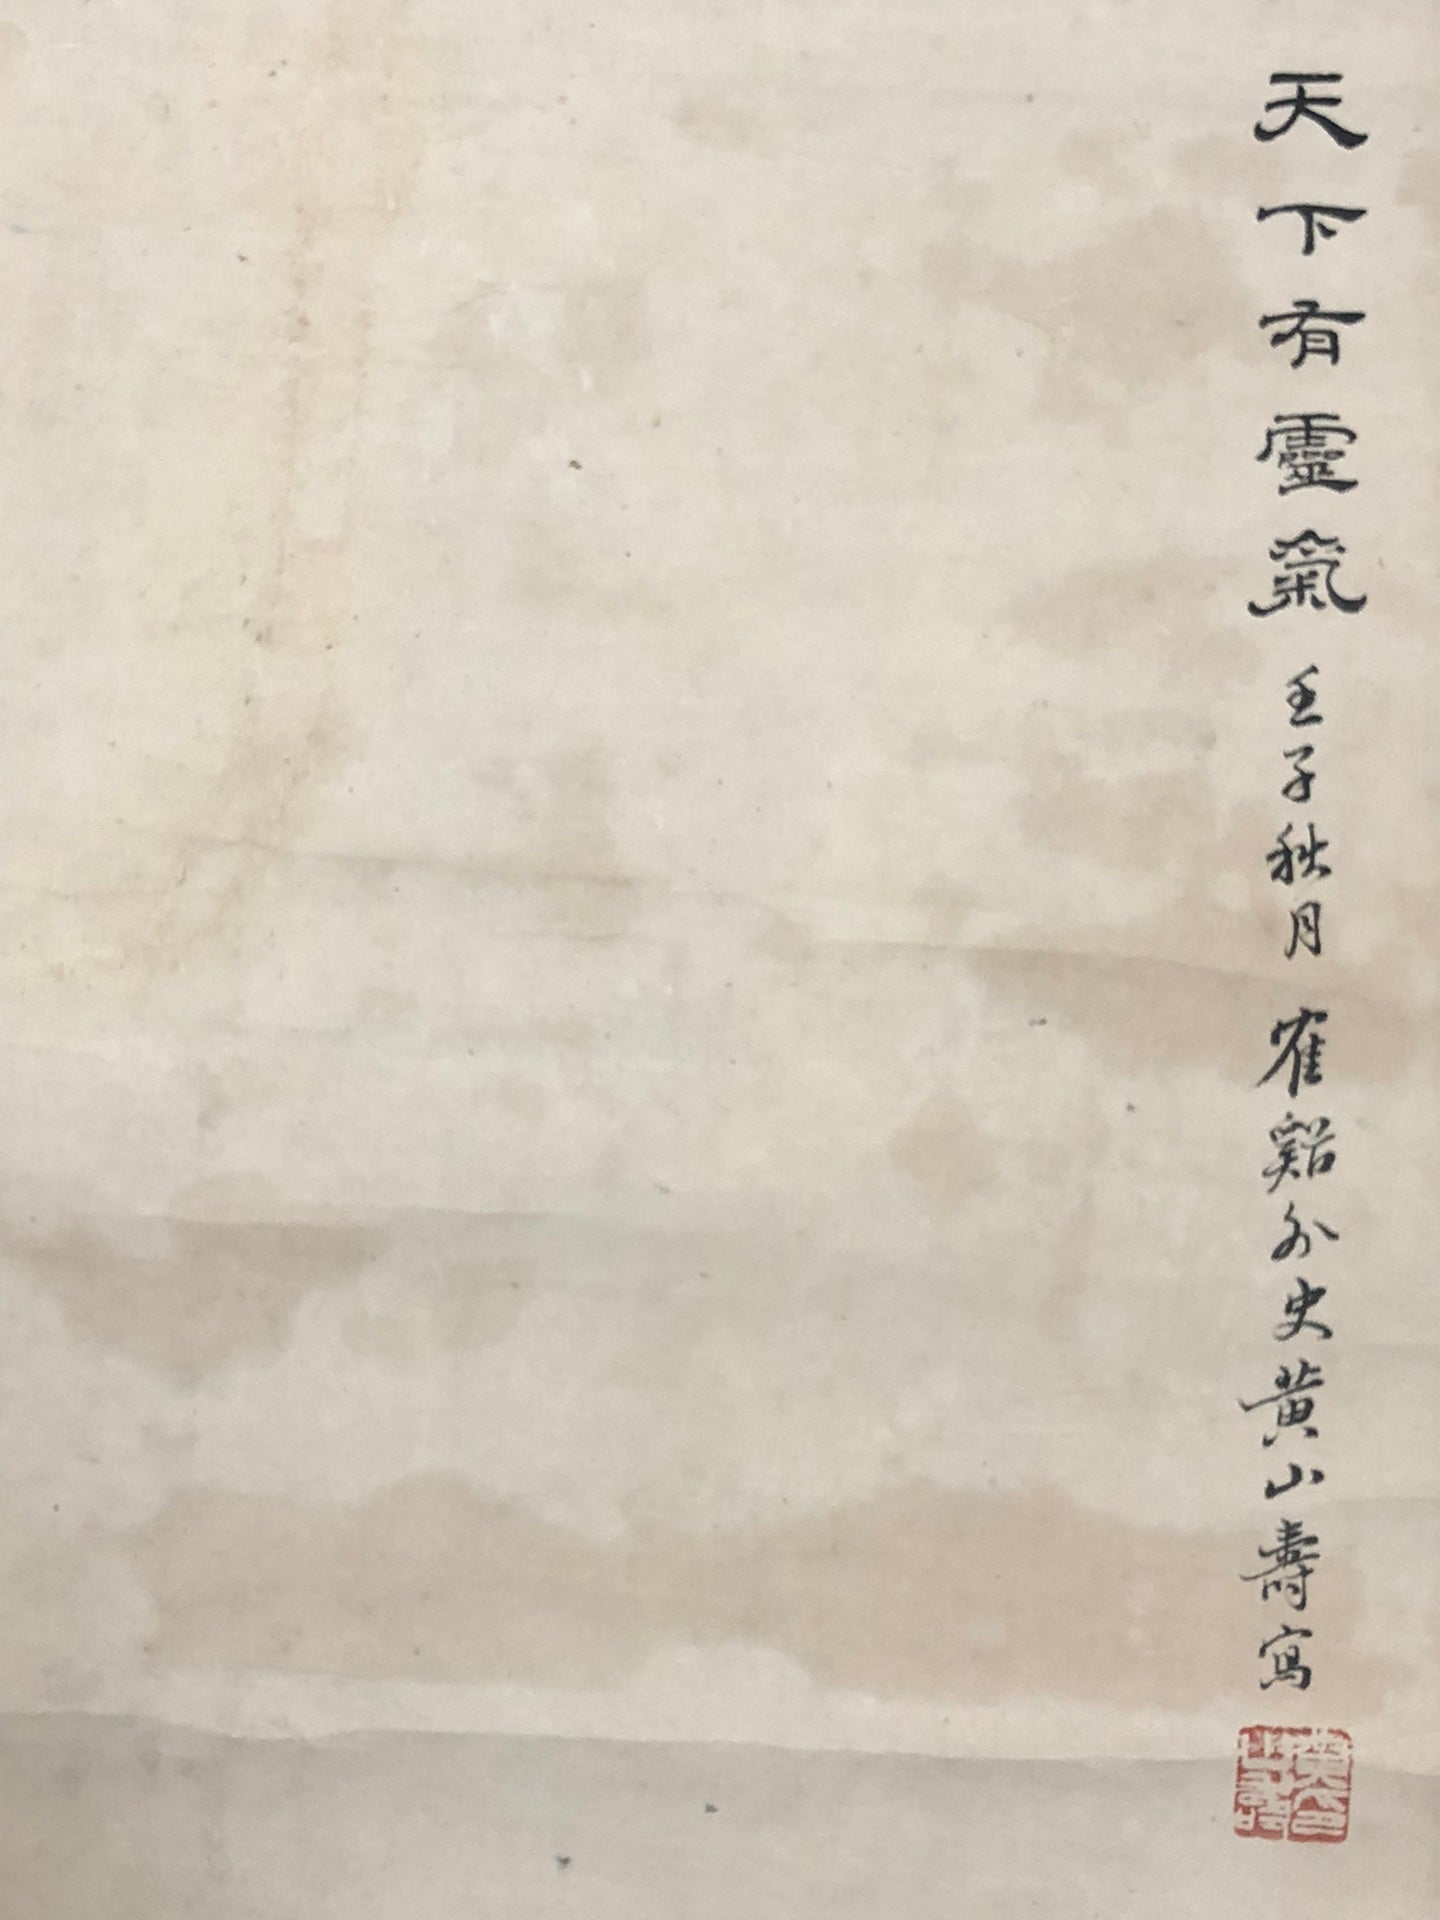 天下有靈氣 壬子秋月 隺谿外史黄山壽寫